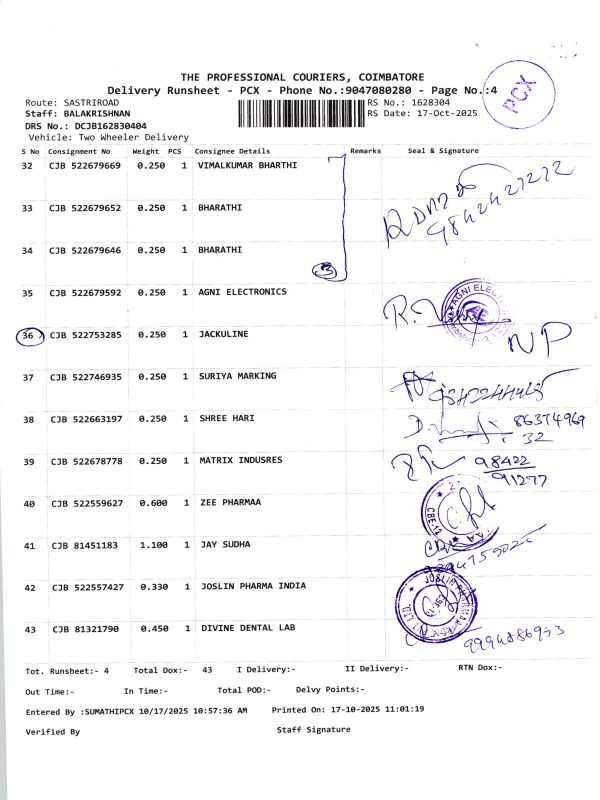 THE PROFESSIONAL COURIERS, COIMBATORE
Delivery Runsheet - PCX - Phone No.:9047080280 - Page No.:4
PCX
Route: SASTRIROAD
RS No.: 1628304
Staff: BALAKRISHNAN
RS Date: 17-Oct-2025
DRS No.: DCJB162830404
Vehicle: Two Wheeler Delivery
S No Consignment No Weight PCS Consignee Details Remarks Seal & Signature
32 CJB 522679669 0.250 1 VIMALKUMAR BHARTHI
33 CJB 522679652 0.250 1 BHARATHI
34 CJB 522679646 0.250 1 BHARATHI
3
35 CJB 522679592 0.250 1 AGNI ELECTRONICS
36 CJB 522753285 0.250 1 JACKULINE NP
37 CJB 522746935 0.250 1 SURIYA MARKING
38 CJB 522663197 0.250 1 SHREE HARI 86374969
32
39 CJB 522678778 0.250 1 MATRIX INDUSRES 98422
91277
40 CJB 522559627 0.600 1 ZEE PHARMAA
41 CJB 81451183 1.100 1 JAY SUDHA
42 CJB 522557427 0.330 1 JOSLIN PHARMA INDIA
43 CJB 81321790 0.450 1 DIVINE DENTAL LAB
Tot. Runsheet:- 4 Total Dox:- 43 I Delivery:- II Delivery:- RTN Dox:-
Out Time:- In Time:- Total POD:- Delvy Points:-
Entered By :SUMATHIPCX 10/17/2025 10:57:36 AM Printed On: 17-10-2025 11:01:19
Verified By Staff Signature